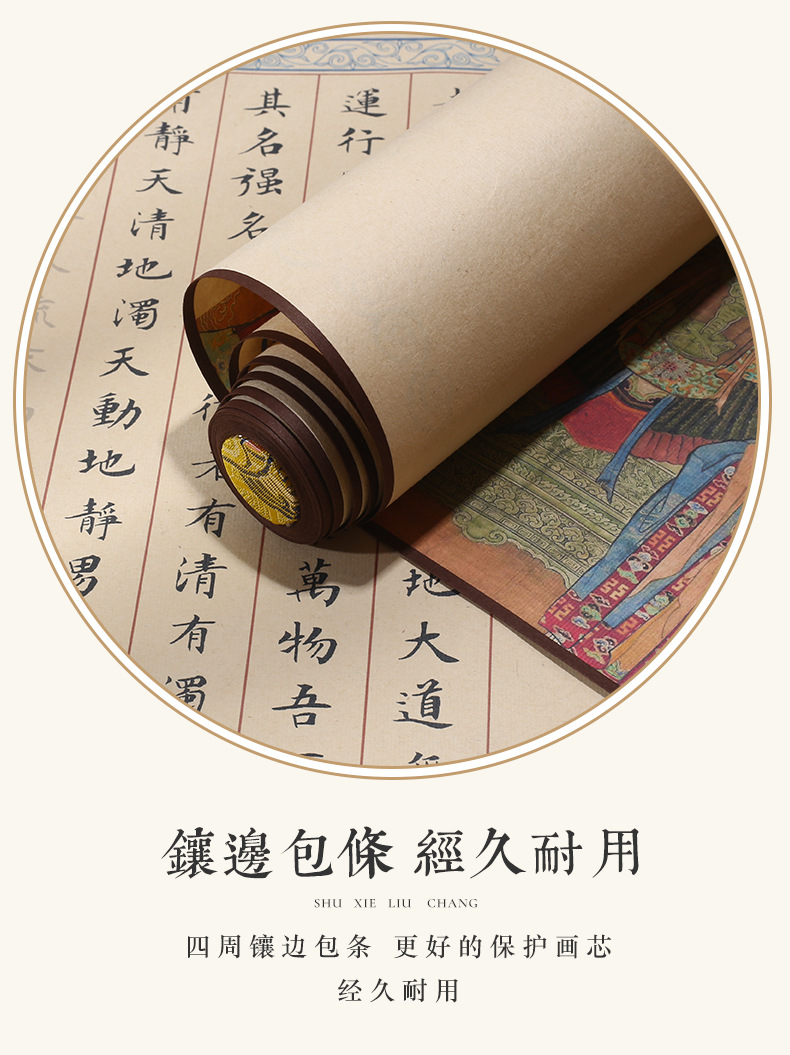 地大道
運行萬物吾
其名强名者有清有濁
有靜天清地濁天動地靜男
鑲邊包條 經久耐用
SHU XIE LIU CHANG
四周镶边包条 更好的保护画芯
经久耐用